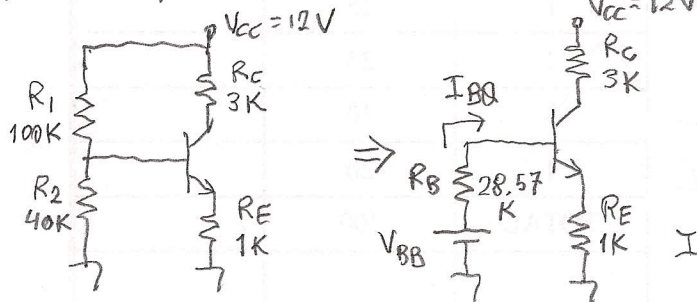 VCC=12V
R1
100K
RC
3K
R2
40K
RE
1K
⇒
VCC=12V
RC
3K
IBQ
RB
28.57
K
VBB
RE
1K
I